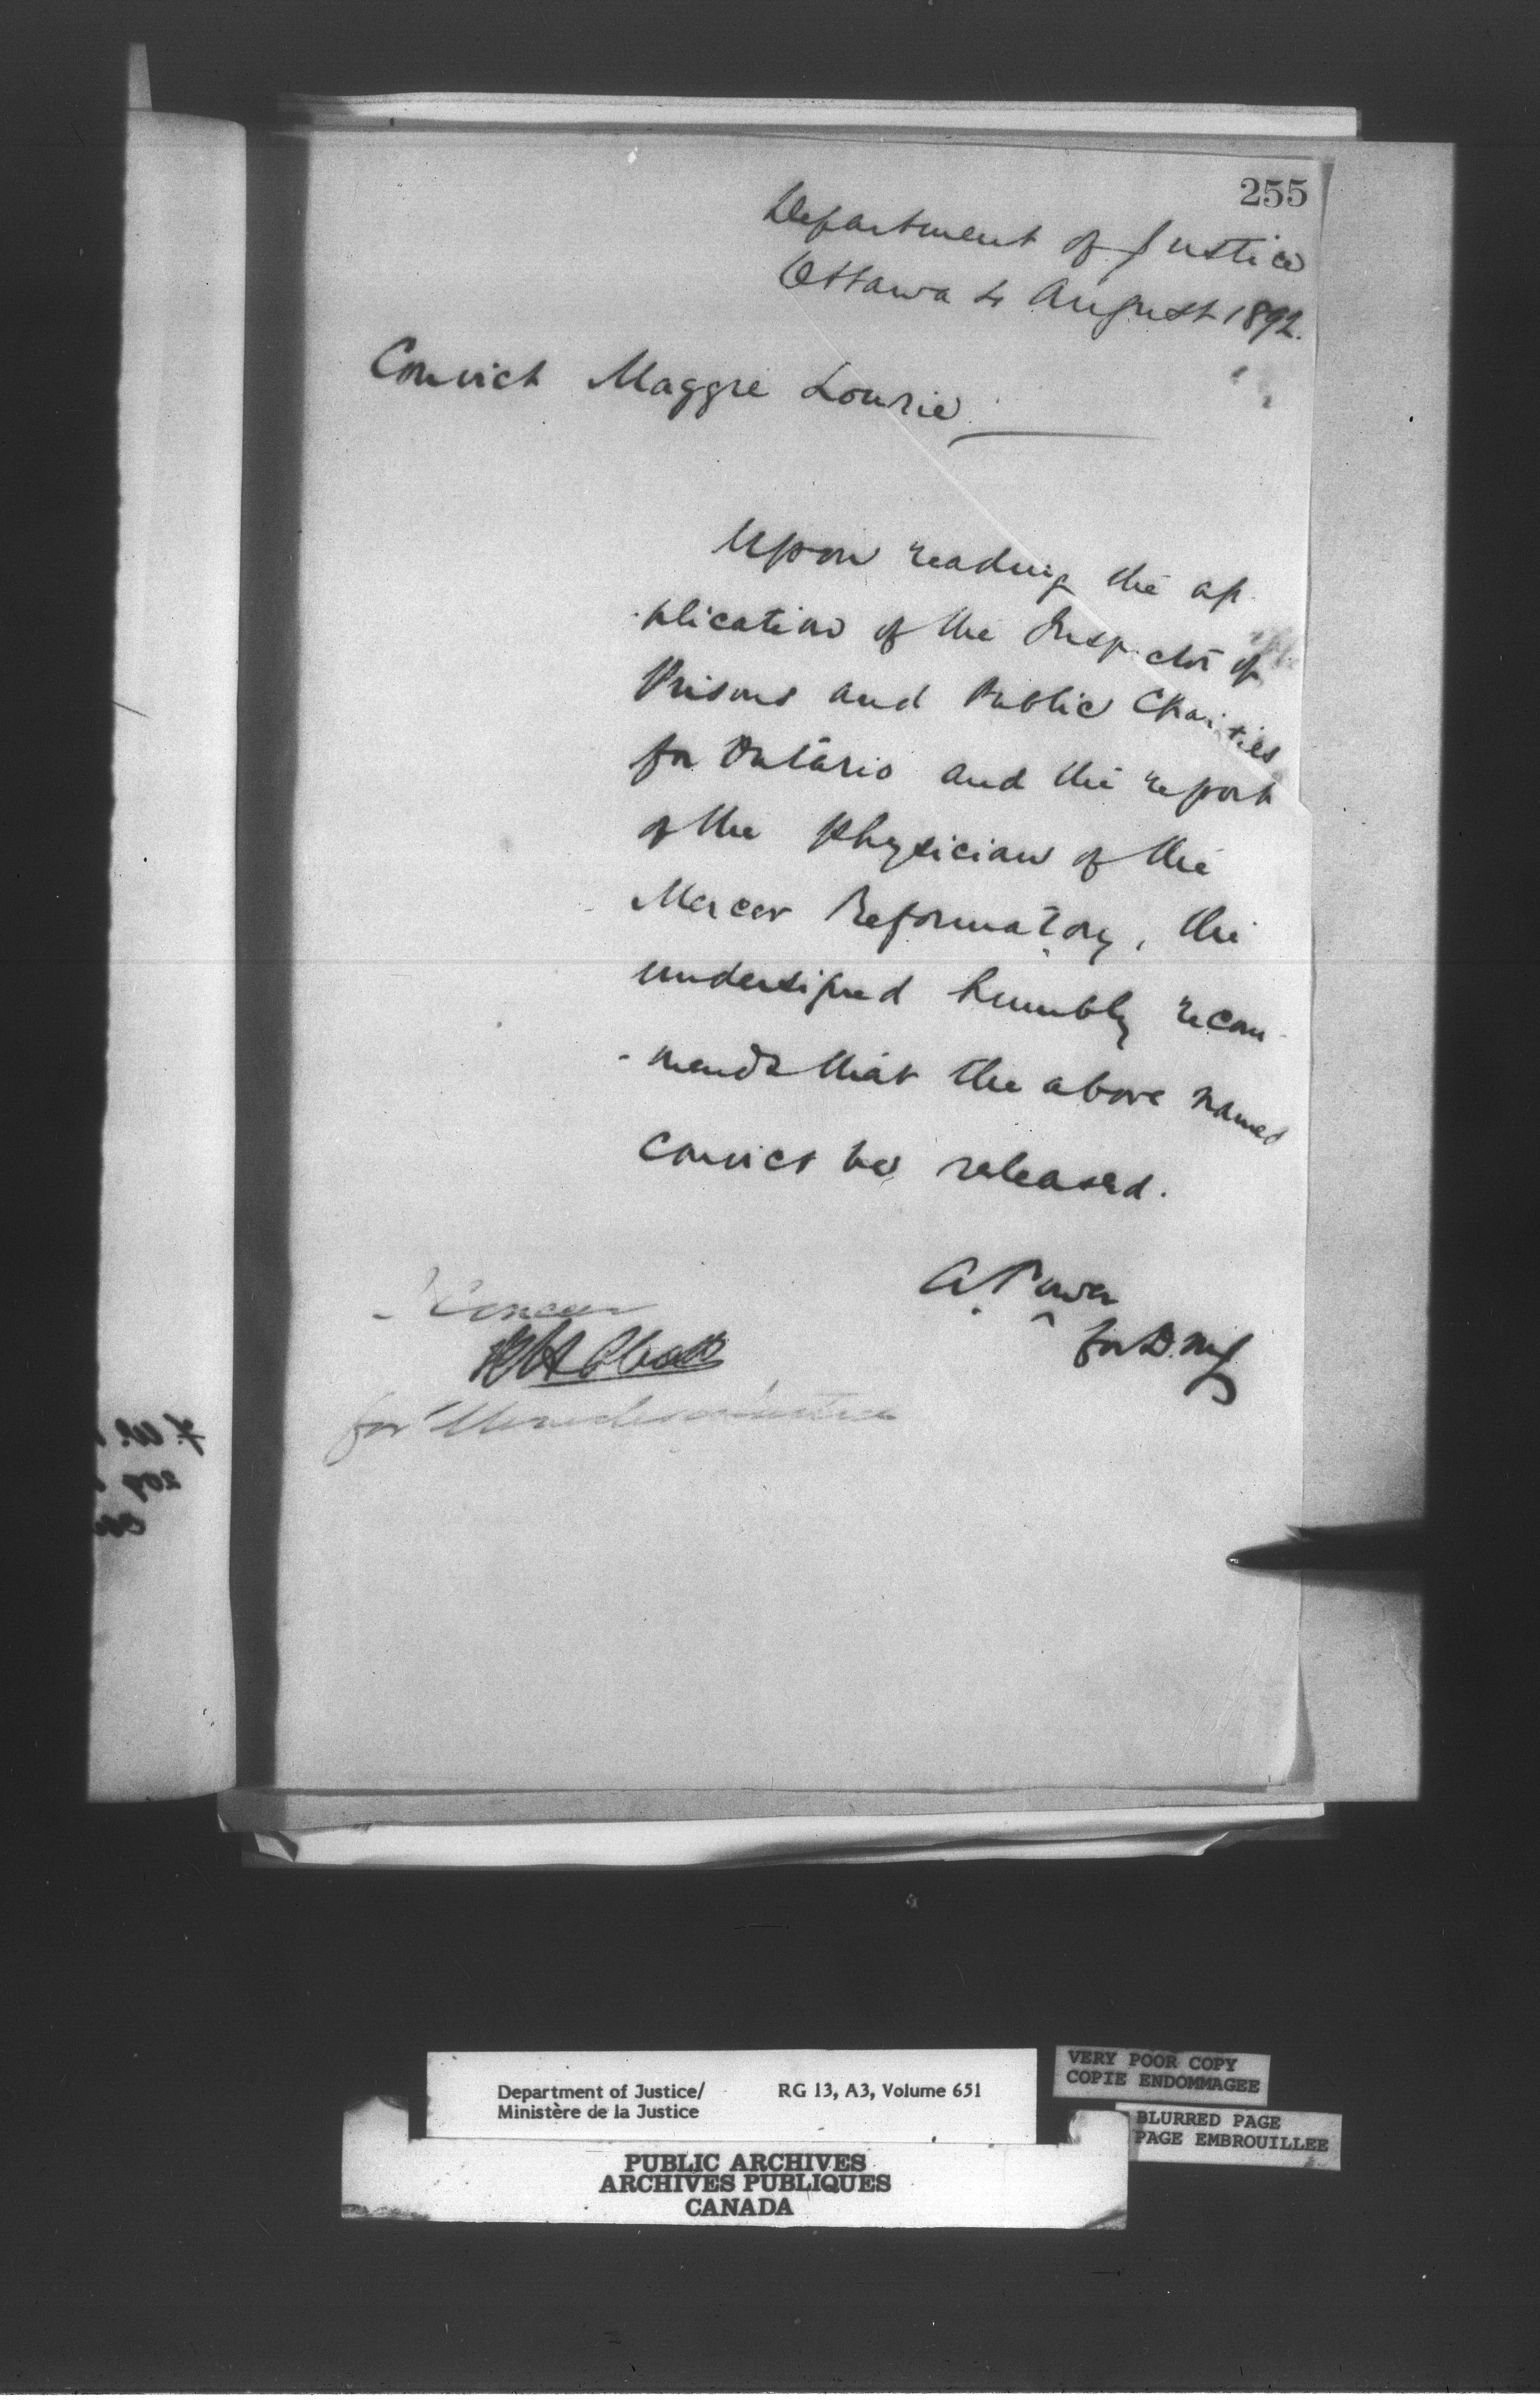 255
Department of Justice
Ottawa 4 August 1892.
Convict Maggie Lourie
Upon reading the ap
-plication of the Inspector of
Prisons and Public Charities
for Ontario and the report
of the Physician of the
Mercer Reformatory, the
undersigned humbly recom-
-mends that the above named
convict be released.
A. Power
for D.M.J.
I Concur
for Minister of Justice
Department of Justice/
Ministère de la Justice
RG 13, A3, Volume 651
VERY POOR COPY
COPIE ENDOMMAGEE
BLURRED PAGE
PAGE EMBROUILLEE
PUBLIC ARCHIVES
ARCHIVES PUBLIQUES
CANADA